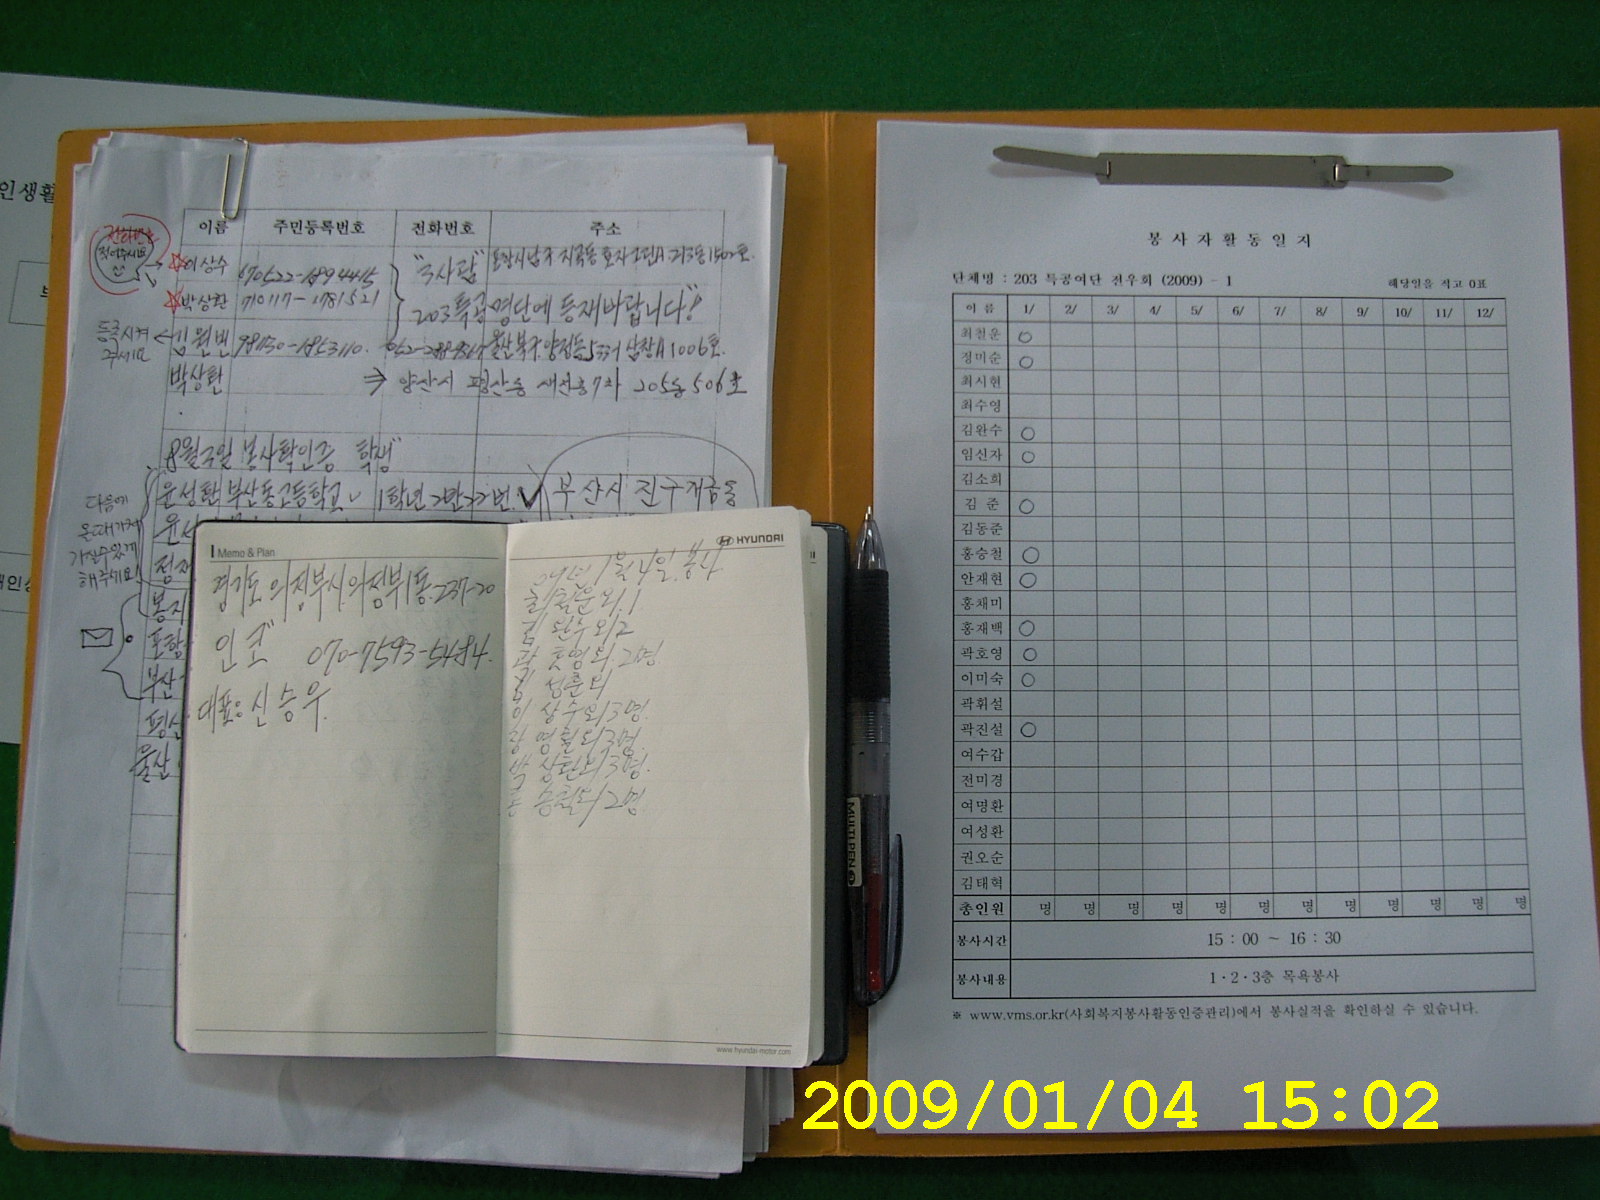 인생활
이름 주민등록번호 전화번호 주소
전화번호
적어주시면
이상수 "국사랍"
박상환
203특공 명단에 등재바랍니다"!
등록시켜
주세요
김원빈
박상환 ⇒ 양산시 평산동 205동 506호
봉사확인증 학생"
윤성환 부산동고등학교 1학년 부산시 진구 개금동
다음에
올때 가져
가실수 있게
해주세요!
봉지
포항
부산
평산
울산
Memo & Plan
경기도 의정부시 의정부1동 237-20
인코 070-7593-5484.
대표: 신승우
HYUNDAI
1월 4일 봉사
최철운 외.1
김완수 외2
외.2명
이 상수외3명.
장 영철외3명.
박 상환외3명.
홍 승철외2명
www.hyundai-motor.com
MULTI PEN
봉사자활동일지
단체명 : 203 특공여단 전우회 (2009) - 1 해당일을 적고 0표
이 름 1/ 2/ 3/ 4/ 5/ 6/ 7/ 8/ 9/ 10/ 11/ 12/
최철운 ○
정미순 ○
최시현
최수영
김완수 ○
임신자 ○
김소희
김 준 ○
김동준
홍승철 ○
안재현 ○
홍채미
홍재백 ○
곽호영 ○
이미숙 ○
곽휘설
곽진설 ○
여수갑
전미경
여명환
여성환
권오순
김태혁
총인원 명 명 명 명 명 명 명 명 명 명 명 명
봉사시간 15 : 00 ~ 16 : 30
봉사내용 1·2·3층 목욕봉사
※ www.vms.or.kr(사회복지봉사활동인증관리)에서 봉사실적을 확인하실 수 있습니다.
2009/01/04 15:02